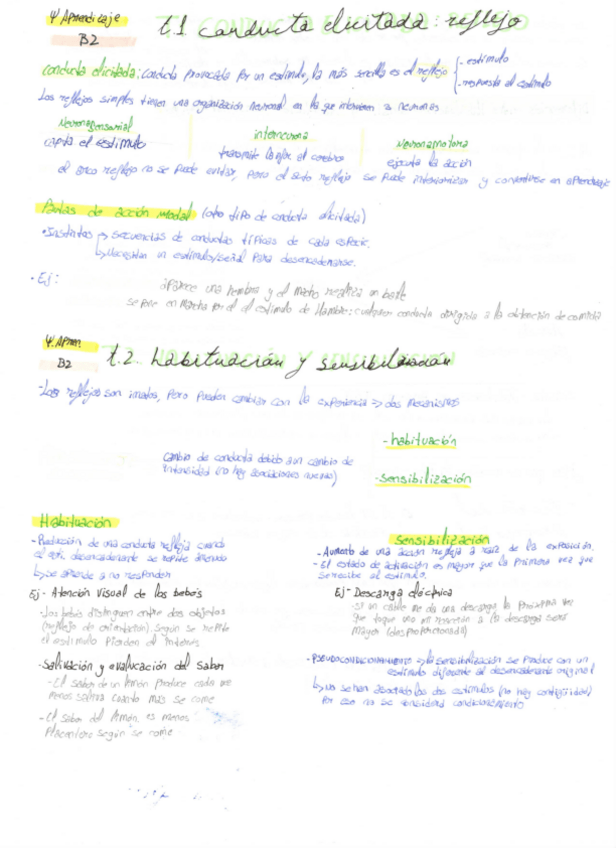 Ψ Aprendizaje
B2
t.1 conducta elicitada: reflejo
conducta elicitada: conducta provocada por un estímulo, la más sencilla es el reflejo
- estímulo
- respuesta al estímulo
Los reflejos simples tienen una organización neuronal en la que intervienen 3 neuronas
Neurona sensorial
capta el estímulo
interneurona
transmite la al cerebro
Neurona motora
ejecuta la acción
el arco reflejo no se puede evitar, pero el acto reflejo se puede interiorizar y convertirse en aprendizaje
Pautas de acción modal (otro tipo de conducta elicitada)
• Instintos → secuencias de conductas típicas de cada especie.
↳ Necesitan un estímulo/señal para desencadenarse.
• Ej:
aparece una hembra y el macho realiza un baile
se pone en marcha por el estímulo de hambre: cualquier conducta dirigida a la obtención de comida
Ψ. Apren.
B2
t.2. habituación y sensibilización
- Los reflejos son innatos, pero pueden cambiar con la experiencia => dos mecanismos
cambio de conducta debido a un cambio de
intensidad (no hay asociaciones nuevas)
- habituación
- sensibilización
Habituación
- Reducción de una conducta refleja cuando
el desencadenante se repite
↳ se aprende a no responder
Ej - Atención visual de los bebés
- Los bebés distinguen entre dos objetos
(reflejo de orientación). Según se repite
el estímulo pierden el interés
- Salivación y evalucación del sabor
- El sabor de un limón produce cada vez
menos saliva cuanto más se come
- El sabor del limón es menos
placentero según se come
Sensibilización
- Aumento de una acción refleja a raíz de la exposición.
- El estado de activación es mayor que la primera vez que
se recibe el estímulo.
Ej - Descarga eléctrica
- Si un cable me da una descarga la próxima vez
que toque uno mi reacción a la descarga será
mayor (desproporcionada)
- PSEUDOCONDICIONAMIENTO => la sensibilización se produce con un
estímulo diferente al desencadenante original
↳ No se han asociado los dos estímulos (no hay contigüidad)
Por eso no se considera condicionamiento